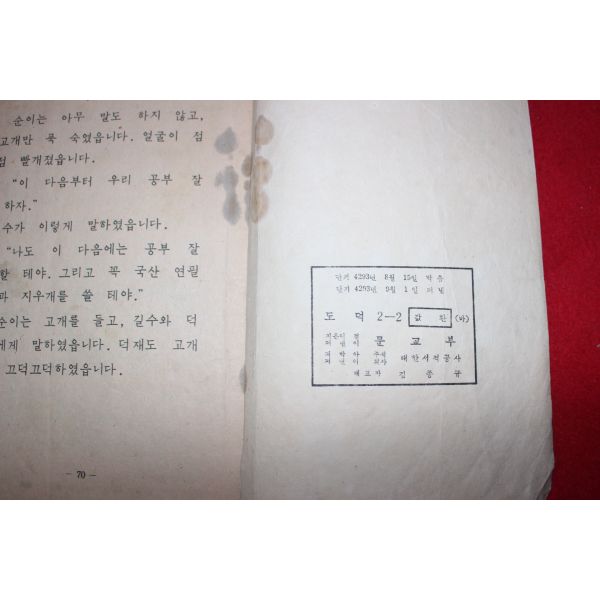 순이는 아무 말도 하지 않고,
고개만 푹 숙였읍니다. 얼굴이 점
점 빨개졌읍니다.
“이 다음부터 우리 공부 잘
하자.”
수가 이렇게 말하였읍니다.
“나도 이 다음에는 공부 잘
할 테야. 그리고 꼭 국산 연필
과 지우개를 쓸 테야.”
순이는 고개를 들고, 길수와 덕
에게 말하였읍니다. 덕재도 고개
끄덕끄덕하였읍니다.
— 70 —
단기 4293년 8월 15일 박음
단기 4293년 9월 1일 펴냄
도덕 2—2 (바)
문교부
대한서적공사
대표자 김종규